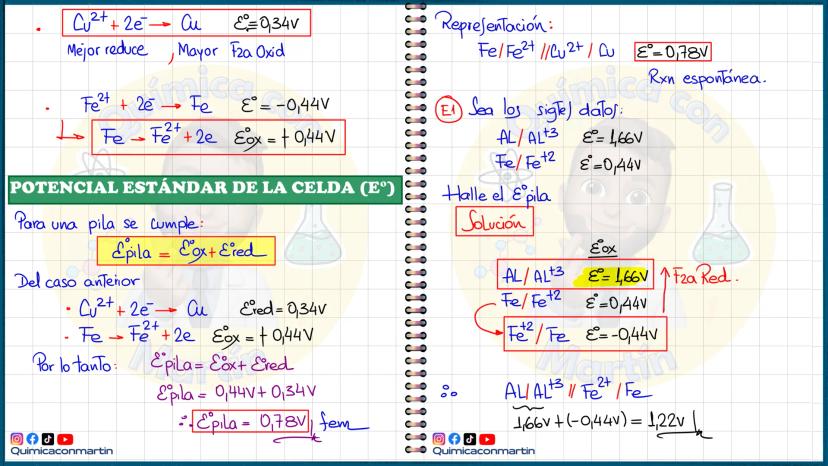 Cu²⁺ + 2e⁻ → Cu Ɛ°= 0,34V
Mejor reduce, Mayor Fza Oxid
Fe²⁺ + 2e⁻ → Fe Ɛ° = -0,44V
Fe → Fe²⁺ + 2e Ɛ°ox = +0,44V
POTENCIAL ESTÁNDAR DE LA CELDA (E°)
Para una pila se cumple:
Ɛ°pila = Ɛ°ox + Ɛ°red
Del caso anterior
• Cu²⁺ + 2e⁻ → Cu Ɛ°red = 0,34V
• Fe → Fe²⁺ + 2e Ɛ°ox = +0,44V
Por lo tanto: Ɛ°pila = Ɛ°ox + Ɛ°red
Ɛ°pila = 0,44V + 0,34V
∴ Ɛ°pila = 0,78V fem
Quimicaconmartin
Representación:
Fe/Fe²⁺ //Cu²⁺ / Cu Ɛ° = 0,78V
Rxn espontánea.
E1 Sea los sigtes datos:
AL/AL⁺³ Ɛ°= 1,66V
Fe/Fe⁺² Ɛ°=0,44V
Halle el Ɛ°pila
Solución
Ɛ°ox
AL/AL⁺³ Ɛ°= 1,66V Fza Red.
Fe/Fe⁺² Ɛ°=0,44V
Fe⁺²/Fe Ɛ°= -0,44V
∴ AL/AL⁺³ // Fe²⁺ / Fe
1,66V + (-0,44V) = 1,22V
Quimicaconmartin
Química con Martín
Química con Martín